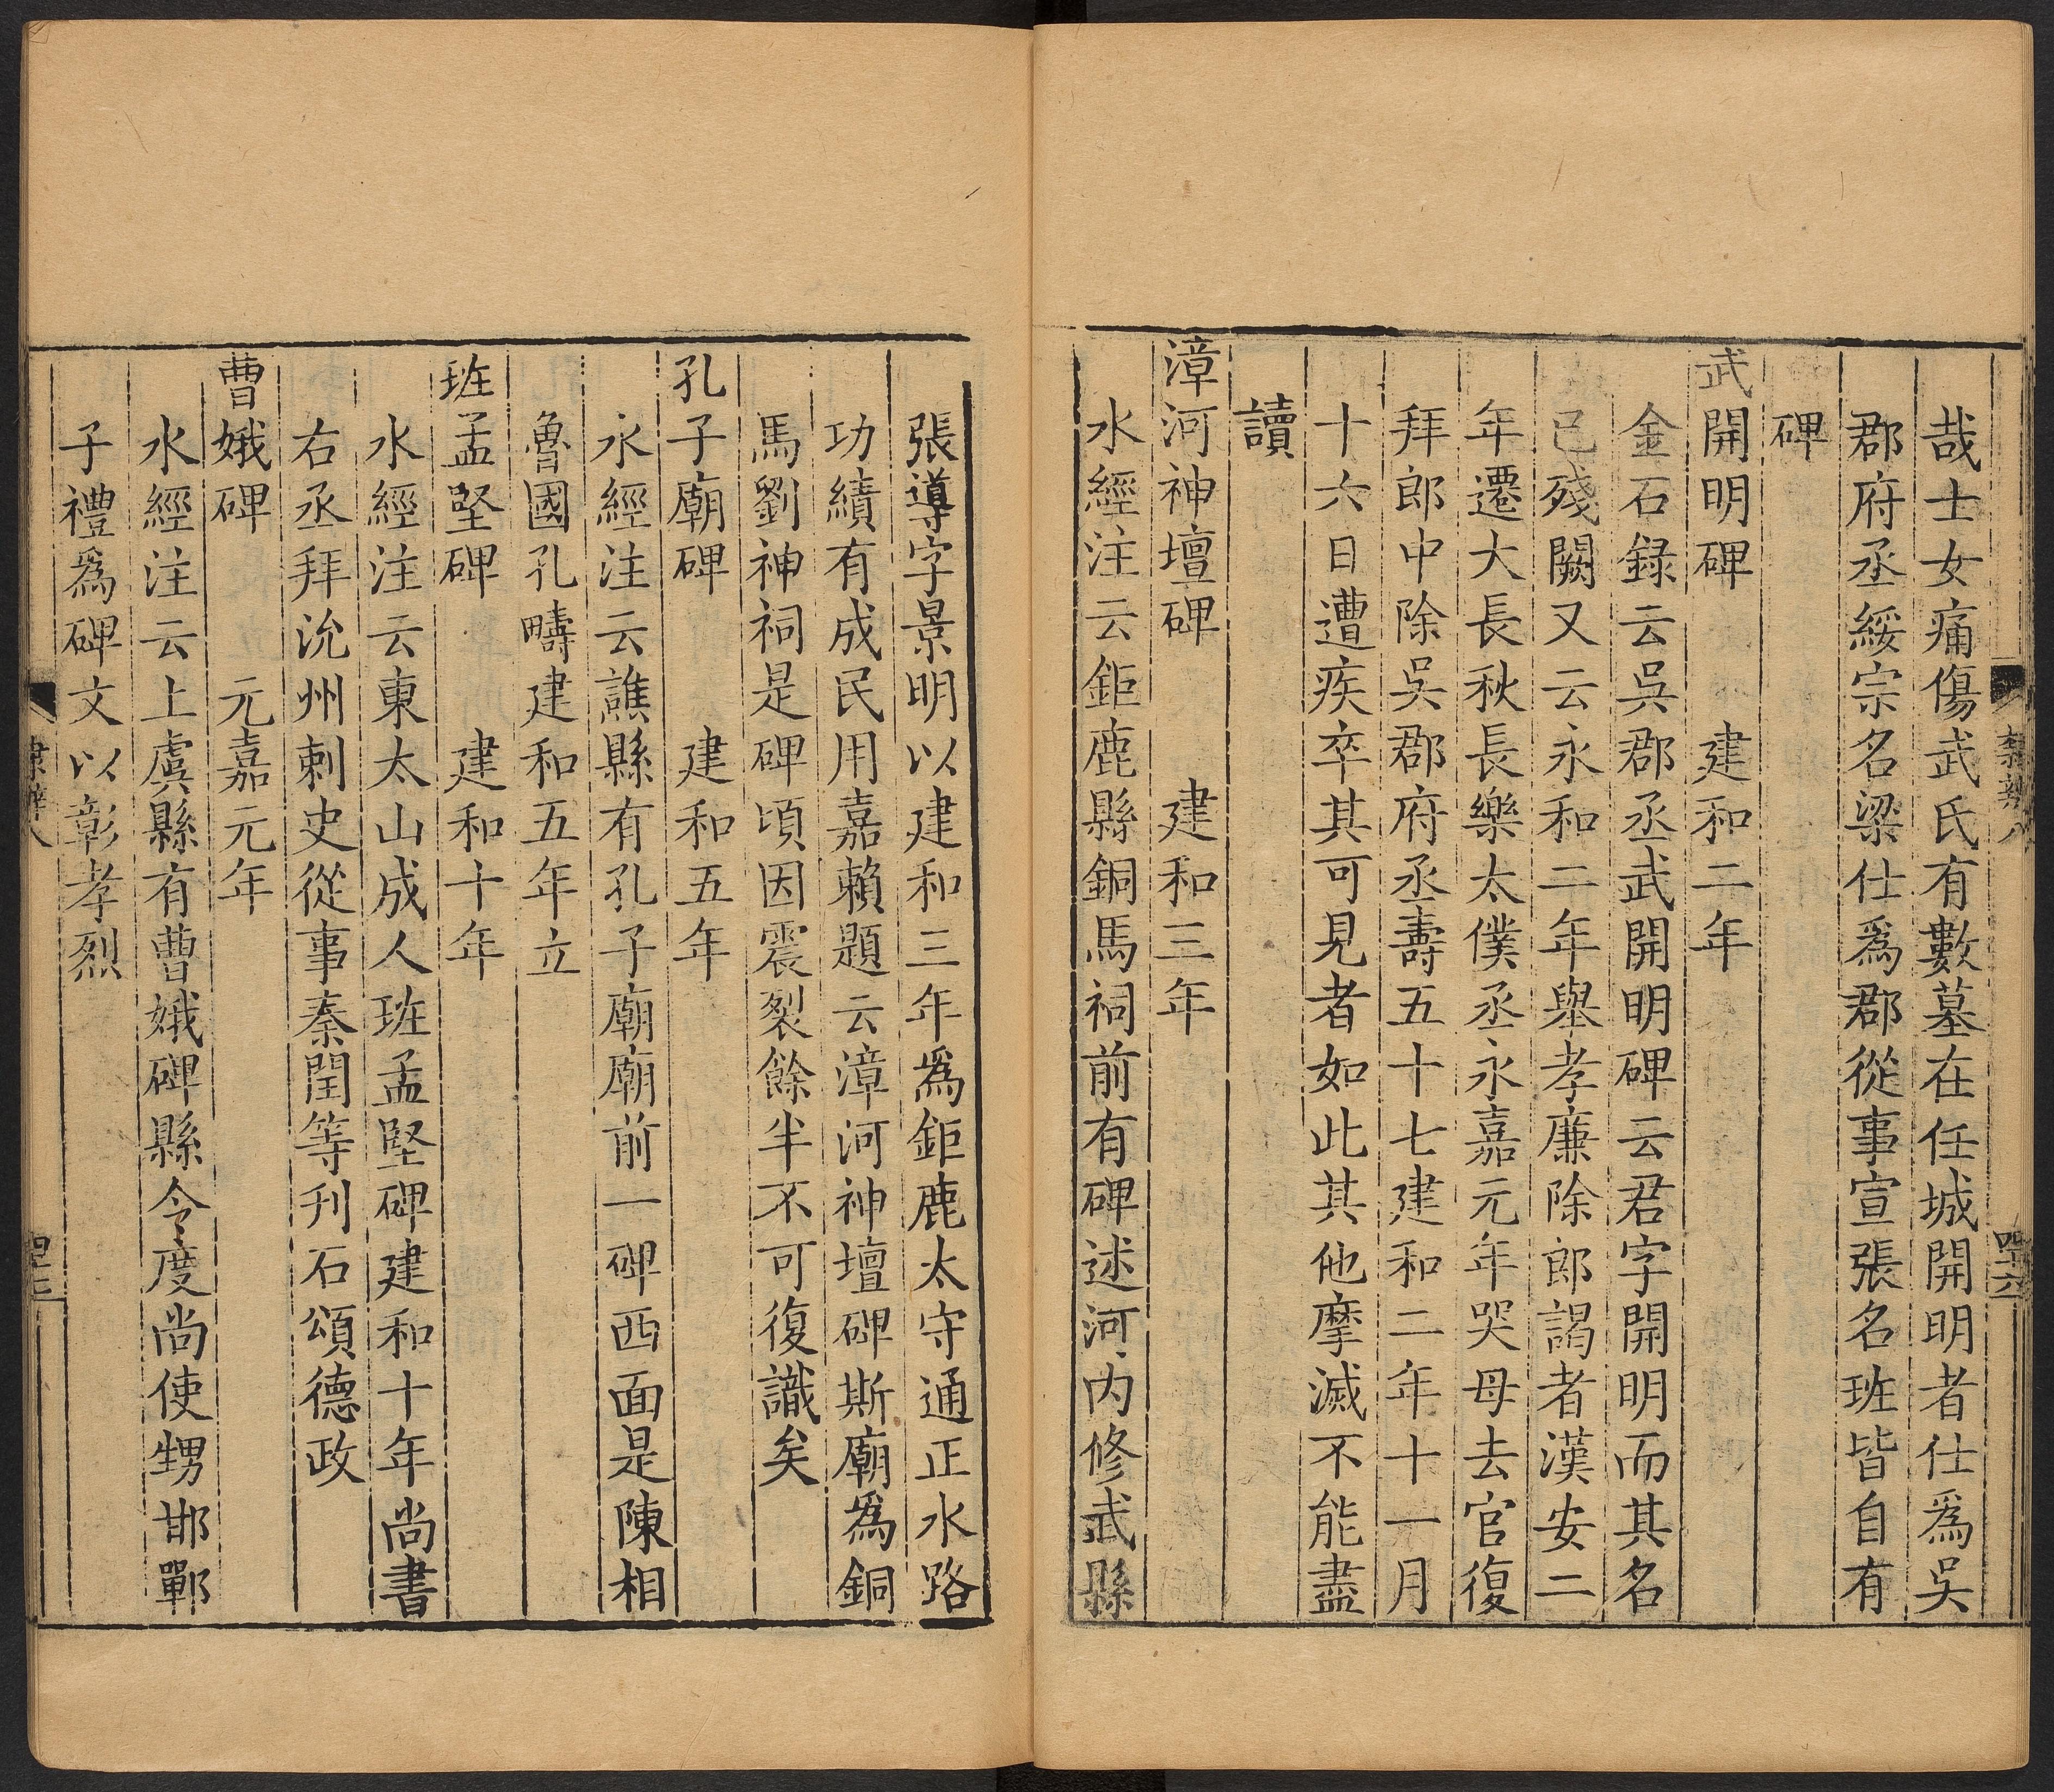 哉士女痛傷武氏有數墓在任城開明者仕爲吳
郡府丞綏宗名梁仕爲郡從事宣張名班皆自有
碑
武開明碑　建和二年
金石録云吳郡丞武開明碑云君字開明而其名
已殘闕又云永和二年舉孝廉除郎謁者漢安二
年遷大長秋長樂太僕丞永嘉元年哭母去官復
拜郎中除吳郡府丞壽五十七建和二年十一月
十六日遭疾卒其可見者如此其他摩滅不能盡
讀
漳河神壇碑　建和三年
水經注云鉅鹿縣銅馬祠前有碑述河内修武縣
張導字景明以建和三年爲鉅鹿太守通正水路
功績有成民用嘉賴題云漳河神壇碑斯廟爲銅
馬劉神祠是碑頃因震裂餘半不可復識矣
孔子廟碑　建和五年
水經注云譙縣有孔子廟廟前一碑西面是陳相
魯國孔疇建和五年立
班孟堅碑　建和十年
水經注云東太山成人班孟堅碑建和十年尚書
右丞拜沇州刺史從事秦閏等刊石頌德政
曹娥碑　元嘉元年
水經注云上虞縣有曹娥碑縣令度尚使甥邯鄲
子禮爲碑文以彰孝烈
隸辨八